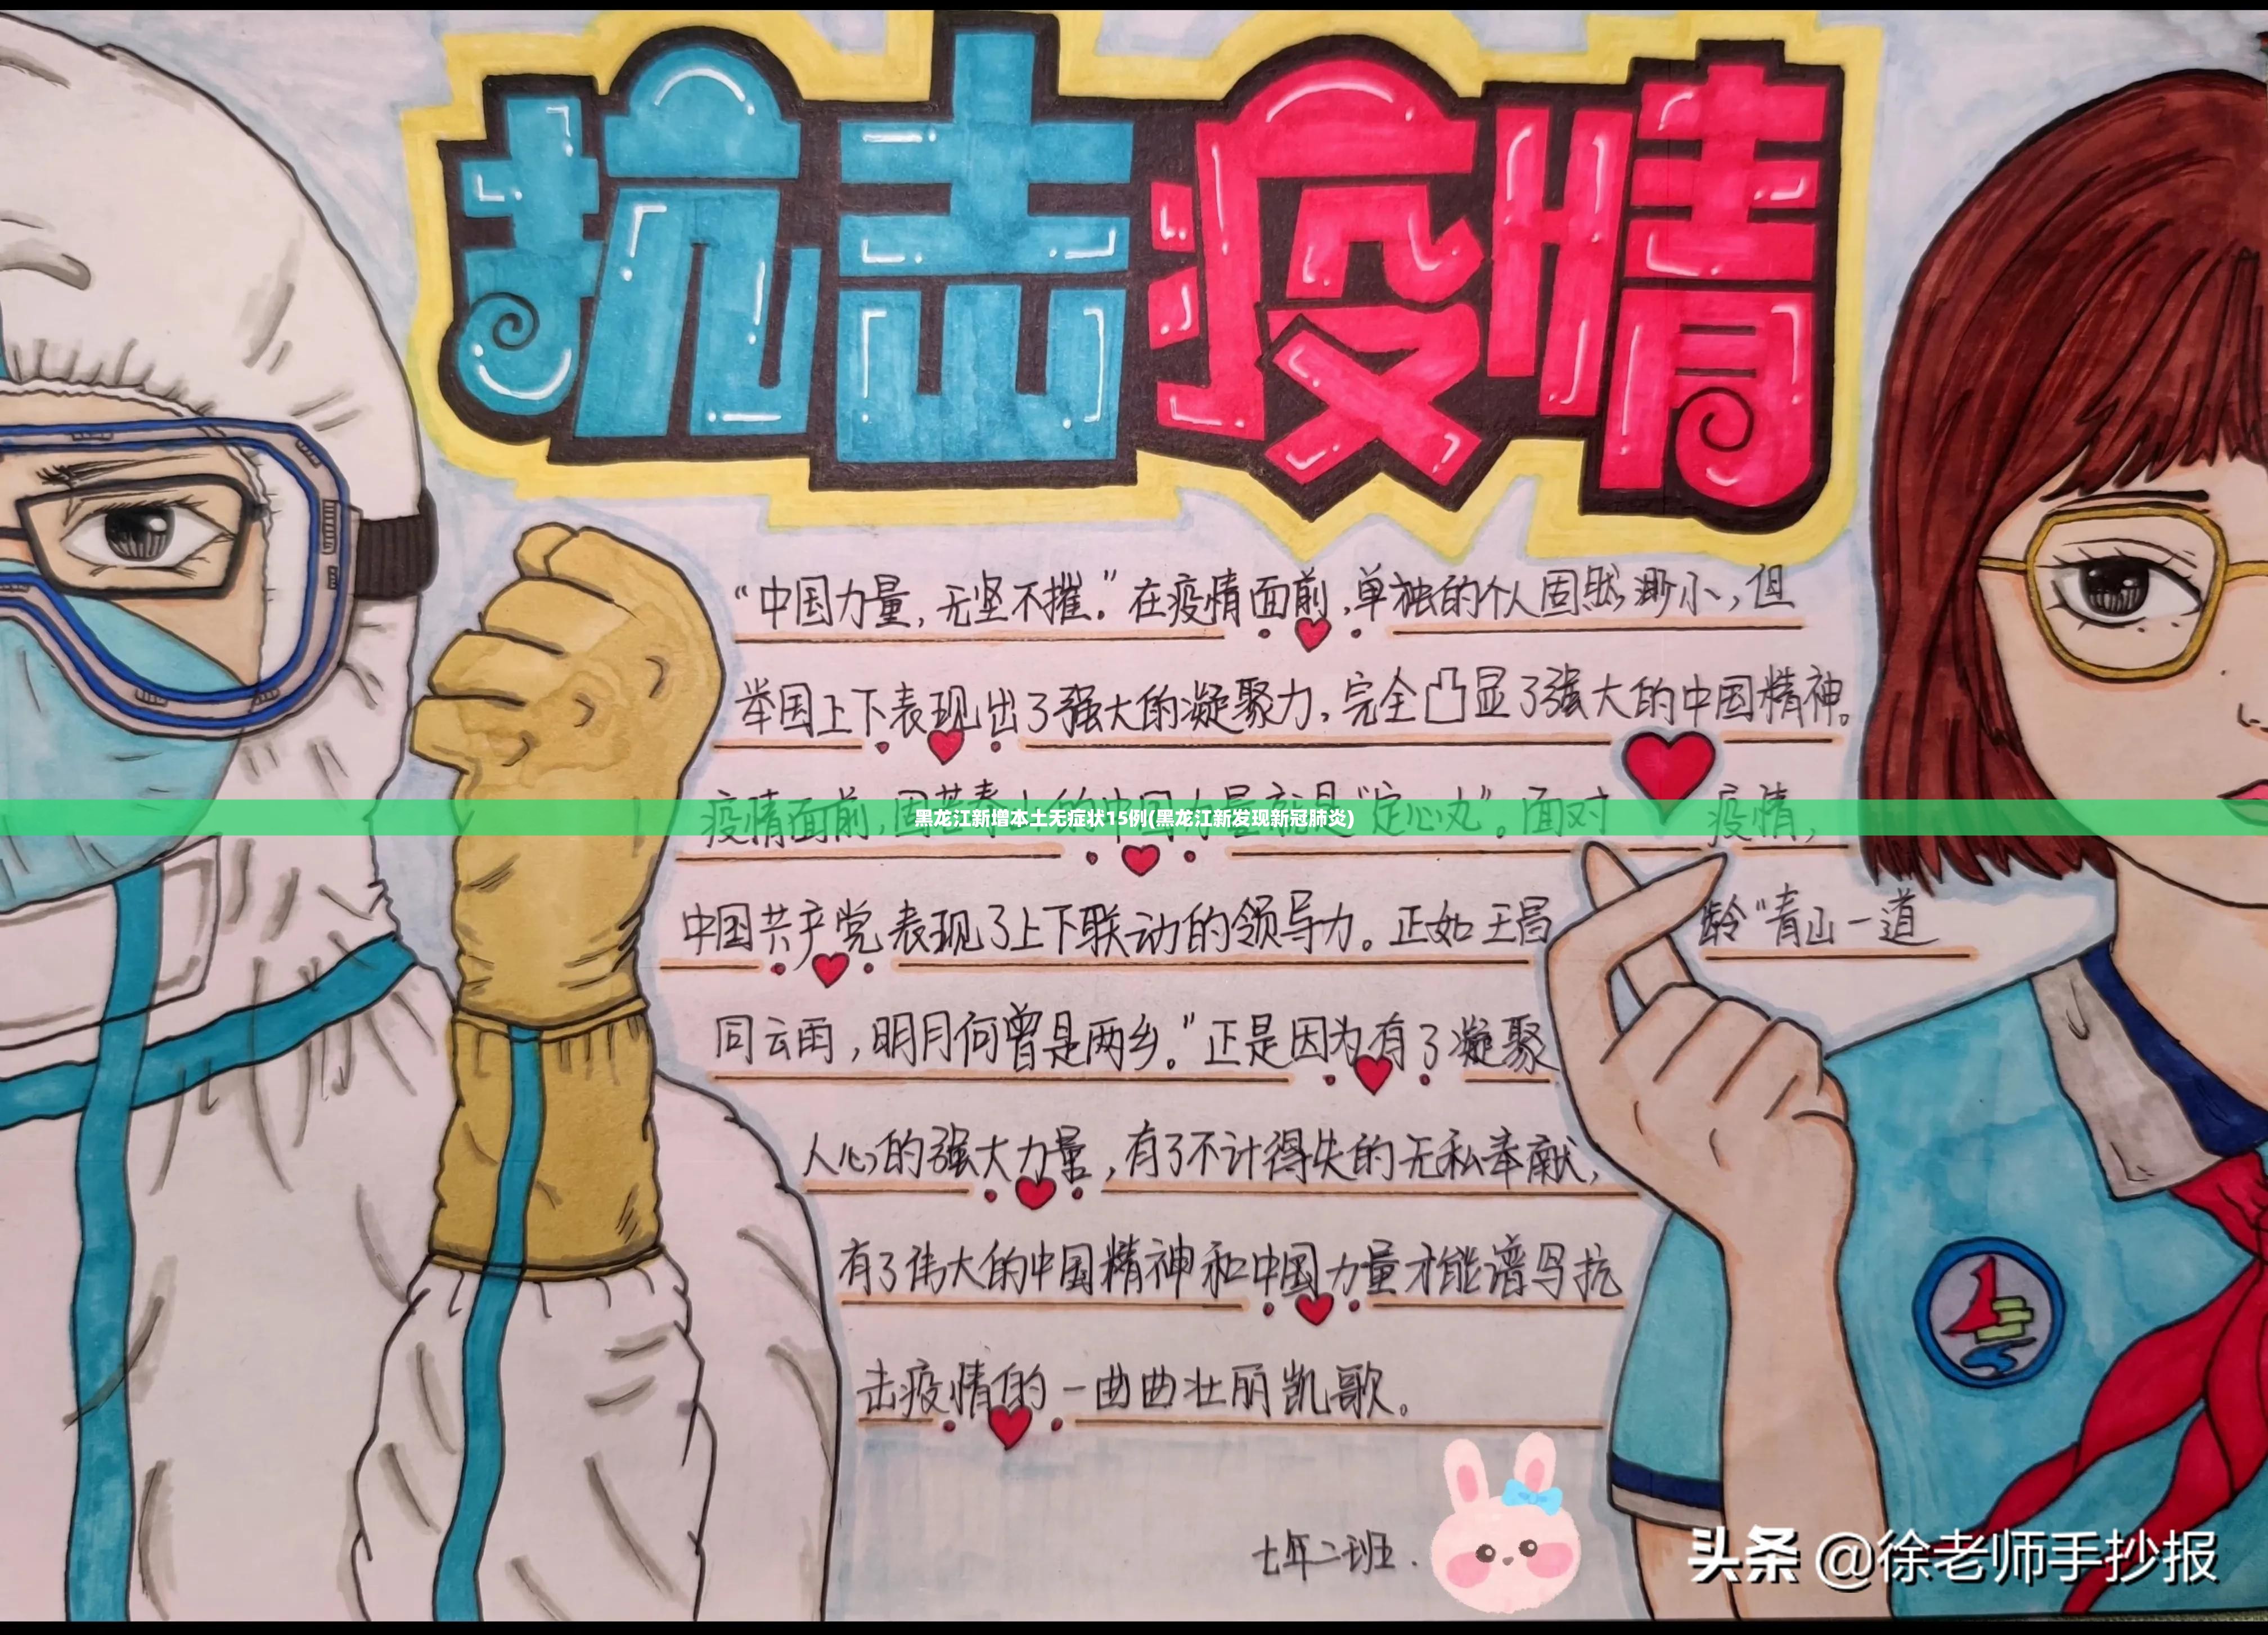 抗击疫情
“中国力量，无坚不摧。”在疫情面前，单独的个人固然渺小，但
举国上下表现出了强大的凝聚力，完全凸显了强大的中国精神。
疫情面前，国 的中国力量就是“定心丸”。面对 疫情，
黑龙江新增本土无症状15例(黑龙江新发现新冠肺炎)
中国共产党表现了上下联动的领导力。正如王昌 龄“青山一道
同云雨，明月何曾是两乡。”正是因为有了凝聚
人心的强大力量，有了不计得失的无私奉献，
有了伟大的中国精神和中国力量才能谱写抗
击疫情的一曲曲壮丽凯歌。
七年二班.
头条 @徐老师手抄报